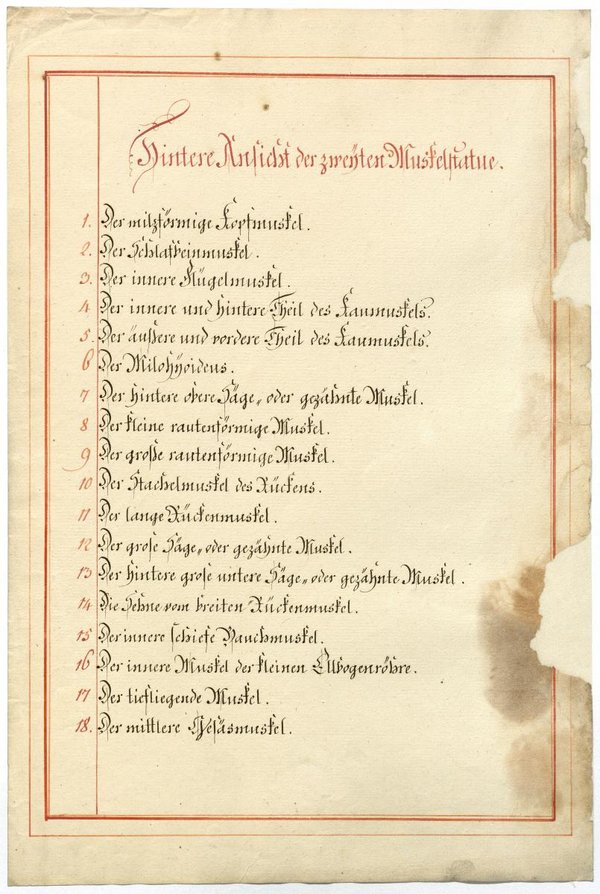 Hintere Ansicht der zweÿten Muskelstatue.
1. Der milzförmige Kopfmuskel.
2. Der Schlafbeinmuskel.
3. Der innere Flügelmuskel.
4 Der innere und hintere Theil des Kaumuskels.
5. Der äußere und vordere Theil des Kaumuskels.
6 Der Milohÿoideus.
7 Der hintere obere Säge„ oder gezähnte Muskel.
8 Der kleine rautenförmige Muskel.
9 Der große rautenförmige Muskel.
10 Der Stachelmuskel des Rückens.
11 Der lange Rückenmuskel.
12 Der grose Säge„ oder gezähnte Muskel.
13 Der hintere grose untere Säge„ oder gezähnte Muskel.
14 Die Sehne vom breiten Rückenmuskel.
15 Der innere schiefe Bauchmuskel.
16 Der innere Muskel der kleinen Ellbogenröhre.
17 Der tiefliegende Muskel.
18. Der mittlere Gesäsmuskel.